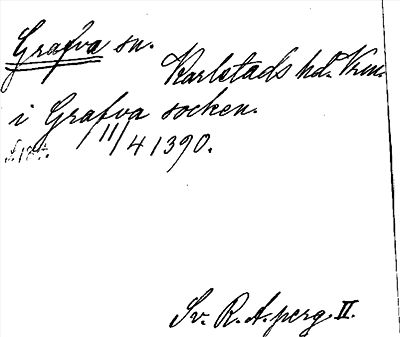 Grafva sn.
Karlstads hd. Vrm.
i Grafva socken.
11/4 1390.
Sv. R. A. perg. II.